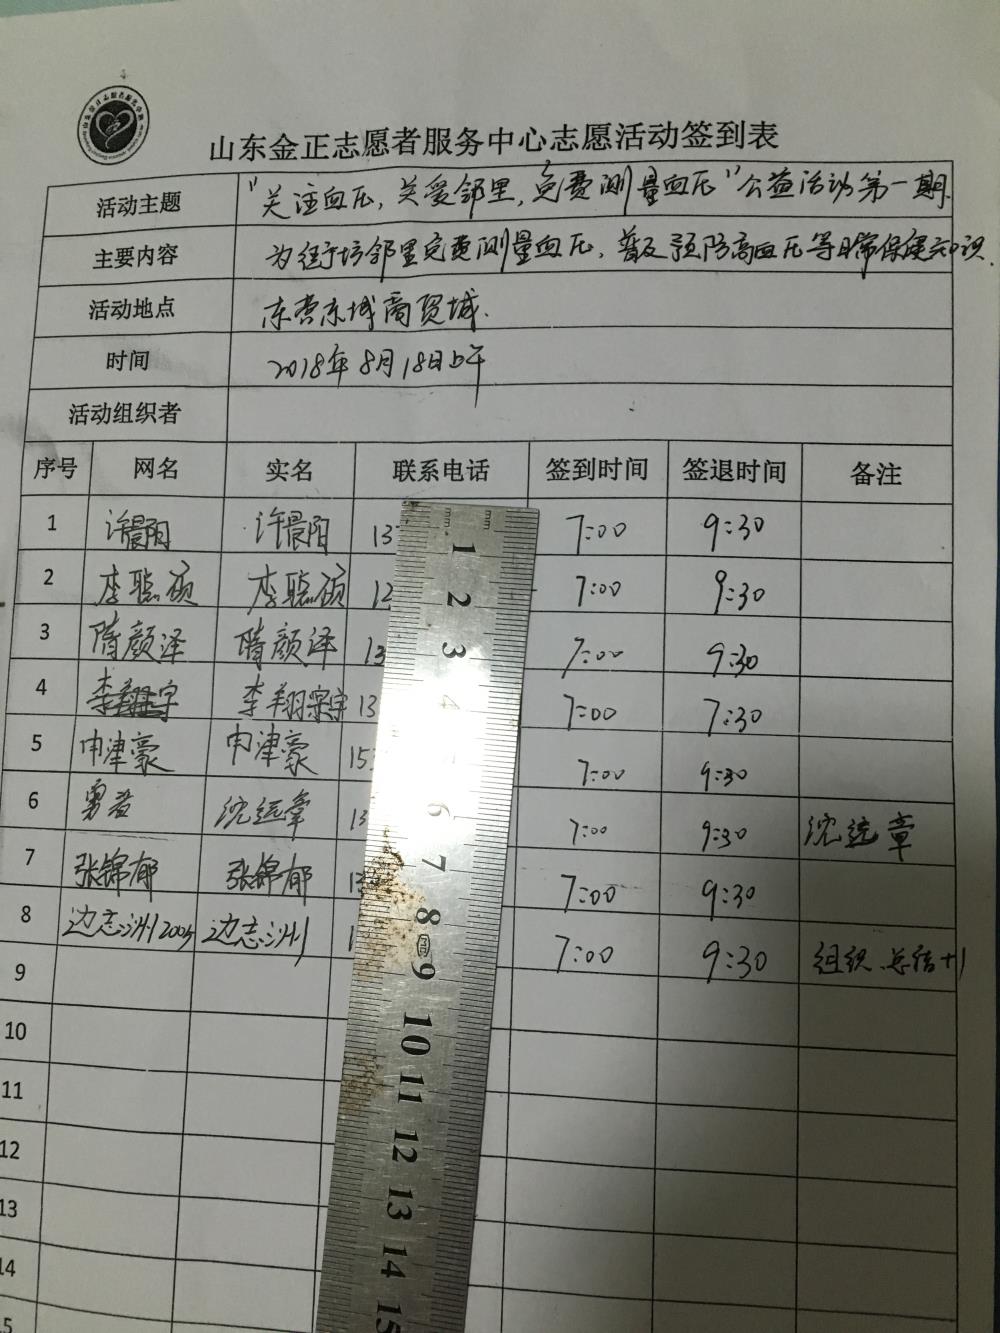 山东金正志愿者服务中心志愿活动签到表
活动主题 "关注血压,关爱邻里,免费测量血压"公益活动第一期.
主要内容 为街坊邻里免费测量血压,普及预防高血压等日常保健知识.
活动地点 东营东城商贸城.
时间 2018年8月18日上午
活动组织者
序号 网名 实名 联系电话 签到时间 签退时间 备注
1 许晨阳 许晨阳 13 7:00 9:30
2 李聪颀 李聪颀 7:00 9:30
3 隋颜泽 隋颜泽 13 7:00 9:30
4 李翔宇 李翔宇 13 7:00 7:30
5 申津豪 申津豪 15 7:00 9:30
6 勇者 沈远章 13 7:00 9:30 沈远章
7 张锦郁 张锦郁 13 7:00 9:30
8 边志洲2005 边志洲 1 7:00 9:30 组织、总结+1
9
10
11
12
13
14
15
1
2
3
4
6
7
8
9
10
11
12
13
14
15